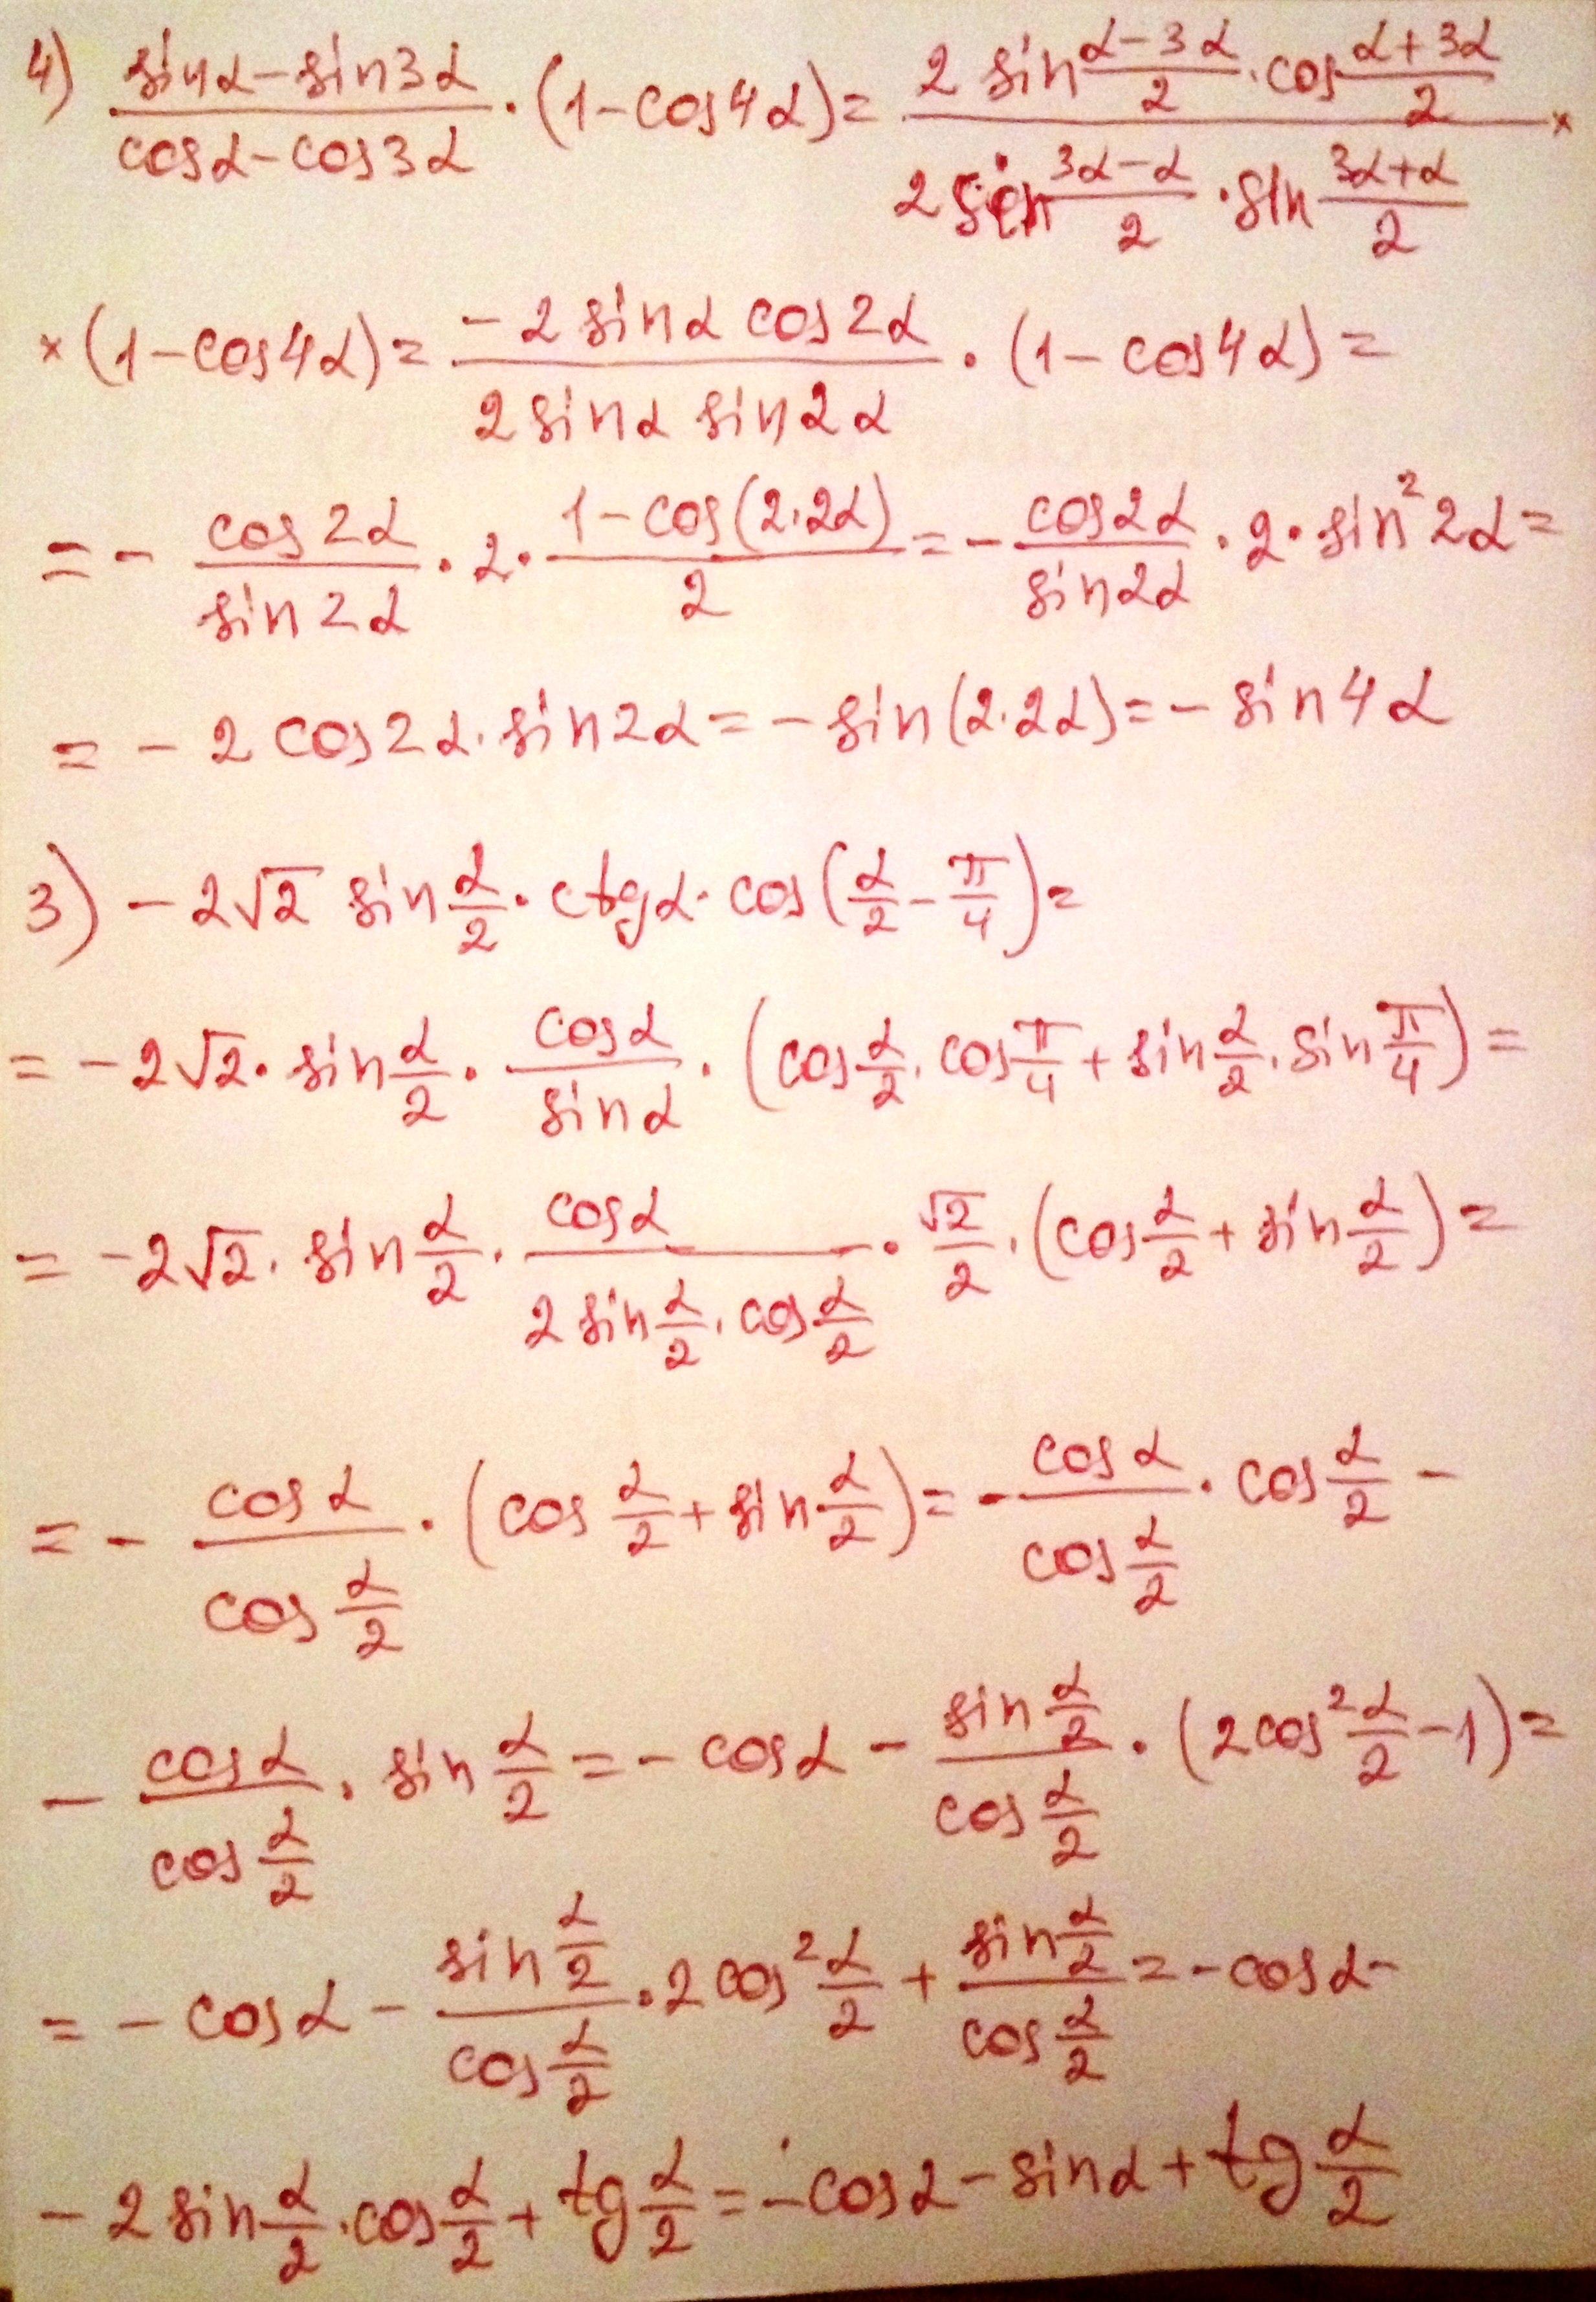 4) (sinα - sin3α)/(cosα - cos3α) · (1 - cos4α) = (2 sin (α-3α)/2 · cos (α+3α)/2)/(2 sin (3α-α)/2 · sin (3α+α)/2) ×
× (1 - cos4α) = (-2 sinα cos2α)/(2 sinα sin2α) · (1 - cos4α) =
= - cos2α/sin2α · 2 · (1 - cos(2·2α))/2 = - cos2α/sin2α · 2 · sin²2α =
= - 2 cos2α · sin2α = - sin(2·2α) = - sin4α
3) - 2√2 sin α/2 · ctgα · cos(α/2 - π/4) =
= - 2√2 · sin α/2 · cosα/sinα · (cos α/2 · cos π/4 + sin α/2 · sin π/4) =
= - 2√2 · sin α/2 · cosα/(2 sin α/2 · cos α/2) · √2/2 · (cos α/2 + sin α/2) =
= - cosα/(cos α/2) · (cos α/2 + sin α/2) = - cosα/(cos α/2) · cos α/2 -
- cosα/(cos α/2) · sin α/2 = - cosα - (sin α/2)/(cos α/2) · (2cos² α/2 - 1) =
= - cosα - (sin α/2)/(cos α/2) · 2 cos² α/2 + (sin α/2)/(cos α/2) = - cosα -
- 2 sin α/2 · cos α/2 + tg α/2 = - cosα - sinα + tg α/2